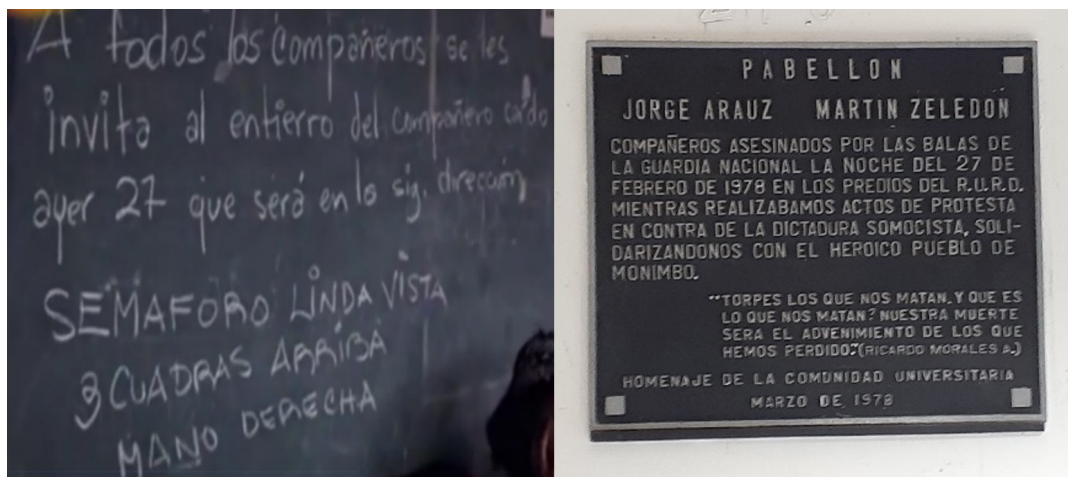 A todos los compañeros se les
invita al entierro del compañero caído
ayer 27 que será en la sig. dirección
SEMAFORO LINDA VISTA
3 CUADRAS ARRIBA
MANO DERECHA
PABELLON
JORGE ARAUZ MARTIN ZELEDON
COMPAÑEROS ASESINADOS POR LAS BALAS DE
LA GUARDIA NACIONAL LA NOCHE DEL 27 DE
FEBRERO DE 1978 EN LOS PREDIOS DEL R.U.R.D.
MIENTRAS REALIZABAMOS ACTOS DE PROTESTA
EN CONTRA DE LA DICTADURA SOMOCISTA, SOLI-
DARIZANDONOS CON EL HEROICO PUEBLO DE
MONIMBO.
"TORPES LOS QUE NOS MATAN. Y QUE ES
LO QUE NOS MATAN? NUESTRA MUERTE
SERA EL ADVENIMIENTO DE LOS QUE
HEMOS PERDIDO." (RICARDO MORALES A.)
HOMENAJE DE LA COMUNIDAD UNIVERSITARIA
MARZO DE 1978